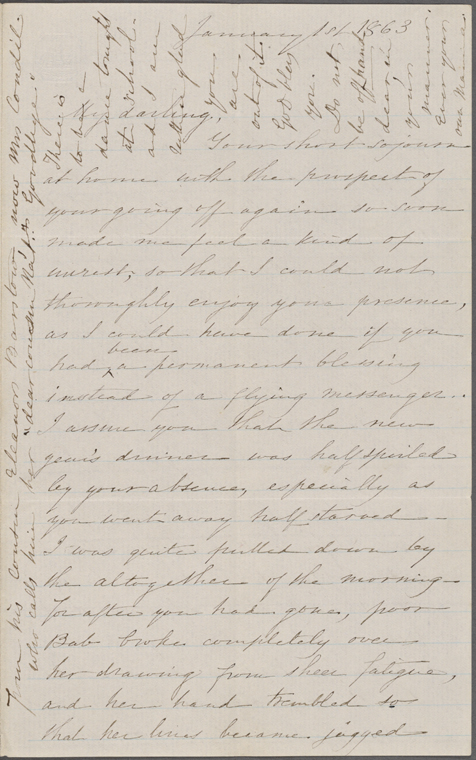 January 1st 1863
My darling,
Your short sojourn
at home with the prospect of
your going off again so soon
made me feel a kind of
unrest; so that I could not
thoroughly enjoy your presence,
as I could have done if you
had been a permanent blessing
instead of a flying messenger.
I assure you that the new
year's dinner was half spoiled
by your absence, especially as
you went away half starved—
I was quite pulled down by
the altogether of the morning—
for after you had gone, poor
Bab broke completely over
her drawing from sheer fatigue,
and her hand trembled so
that her lines became jagged
There is
to be a
dance tonight
at school
and I am
rather glad
you
are
out of it.
God bless
you.
Do not
be off hand
dear in
your
manner.
Ever your
own Mama
From his cousin Eleanor Barstow now Mrs
who calls him her "dear cousin Goodbye."